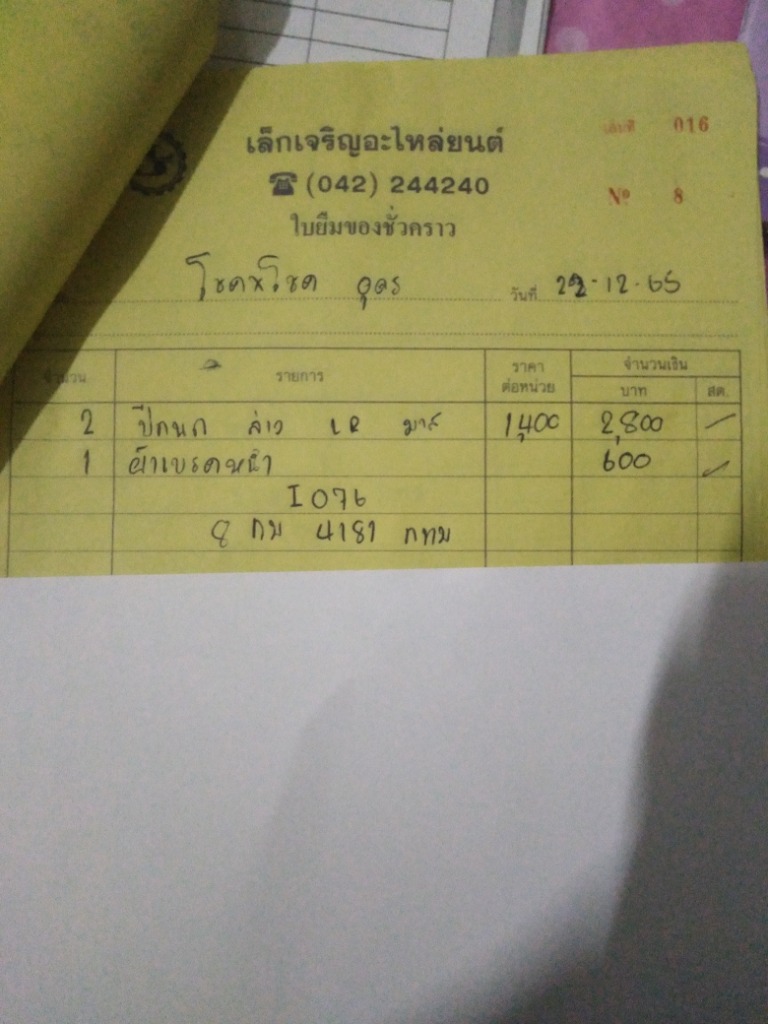 เล็กเจริญอะไหล่ยนต์
เล่มที่ 016
☎ (042) 244240
Nº 8
ใบยืมของชั่วคราว
โชคชโชค อุดร วันที่ 22-12-65
จำนวน รายการ ราคาต่อหน่วย จำนวนเงิน
บาท สต.
2 ปีกนก ล่าง LR 1,400 2,800
1 ผ้าเบรคหน้า 600
I 076
8 กม 4181 กทม